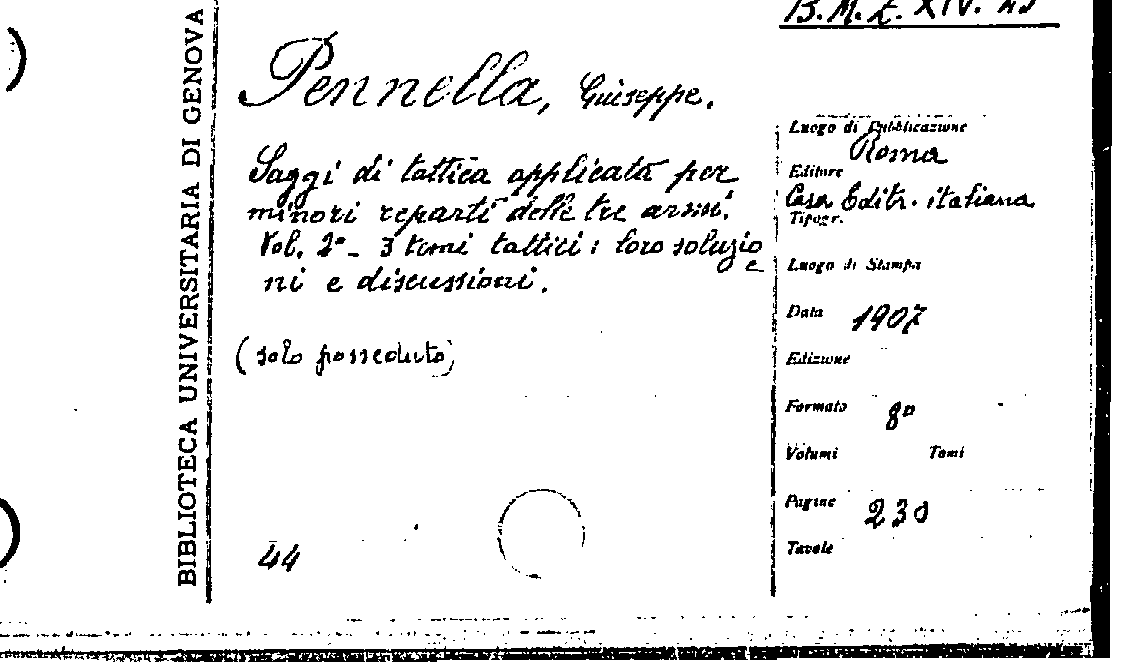 BIBLIOTECA UNIVERSITARIA DI GENOVA
B.M.Z. XIV.
Pennella, Giuseppe.
Saggi di tattica applicata per
minori reparti delle tre armi.
Vol. 2° - 3 temi tattici: loro soluzio
ni e discussioni.
(solo posseduto)
44
Luogo di Pubblicazione
Roma
Editore
Casa Editr. italiana
Tipogr.
Luogo di Stampa
Data 1907
Edizione
Formato 8°
Volumi Tomi
Pagine 230
Tavole